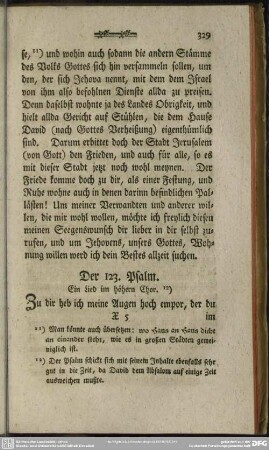 329
se,¹¹) und wohin auch sodann die andern Stämme
des Volks Gottes sich hin versammeln sollen, um
den, der sich Jehova nennt, mit dem dem Israel
von ihm also befohlnen Dienste allda zu preisen.
Denn daselbst wohnte ja des Landes Obrigkeit, und
hielt allda Gericht auf Stühlen, die dem Hause
David (nach Gottes Verheißung) eigenthümlich
sind. Darum erbittet doch der Stadt Jerusalem
(von Gott) den Frieden, und auch für alle, so es
mit dieser Stadt jetzt noch wohl meynen. Der
Friede komme doch zu dir, als einer Festung, und
Ruhe wohne auch in denen darinn befindlichen Pal-
lästen! Um meiner Verwandten und anderer wil-
len, die mit wohl wollen, möchte ich freylich diesen
meinen Seegenswunsch dir lieber in dir selbst zu-
rufen, und um Jehovens, unsers Gottes, Woh-
nung willen werd ich dein Bestes allzeit suchen.
Der 123. Psalm.
Ein Lied im höhern Chor. ¹²)
Zu dir heb ich meine Augen hoch empor, der du
X 5 im
¹¹) Man könnte auch übersetzen: wo Haus an Haus dicht
an einander stehe, wie es in großen Städten gemei-
niglich ist.
¹²) Der Psalm schickt sich mit seinem Inhalte ebenfalls sehr
gut in die Zeit, da David dem Absalom auf einige Zeit
ausweichen mußte.